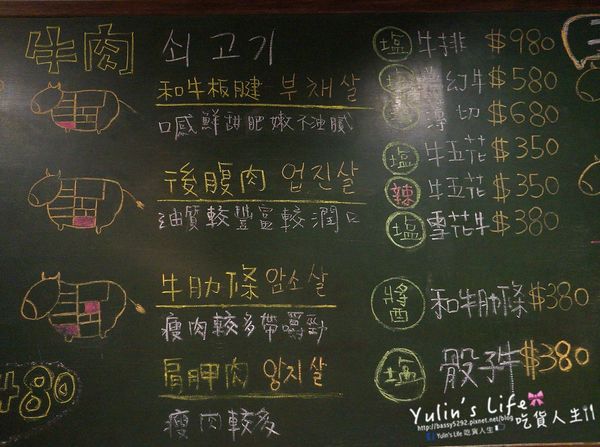 牛肉 쇠고기
和牛板腱 부채살
口感鮮甜肥嫩不油膩
後腹肉 업진살
油質較豐富較潤口
牛肋條 암소살
瘦肉較多帶嚼勁
肩胛肉 양지살
瘦肉較多
480
鹽 牛排 $980
幻牛 $580
薄切 $680
鹽 牛五花 $350
辣 牛五花 $350
鹽 雪花牛 $380
醬 和牛肋條 $380
鹽 骰子牛 $380
Yulin's Life 吃貨人生
http://bassy5292.pixnet.net/blog
Yulin's Life 吃貨人生